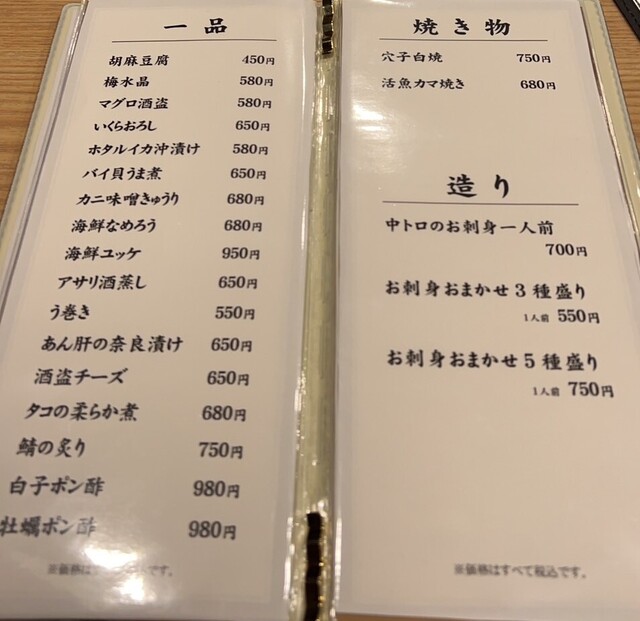 一品
胡麻豆腐 450円
梅水晶 580円
マグロ酒盗 580円
いくらおろし 650円
ホタルイカ沖漬け 580円
バイ貝うま煮 650円
カニ味噌きゅうり 680円
海鮮なめろう 680円
海鮮ユッケ 950円
アサリ酒蒸し 650円
う巻き 550円
あん肝の奈良漬け 650円
酒盗チーズ 650円
タコの柔らか煮 680円
鯖の炙り 750円
白子ポン酢 980円
牡蠣ポン酢 980円
※価格は
です。
焼き物
穴子白焼 750円
活魚カマ焼き 680円
造り
中トロのお刺身一人前
700円
お刺身おまかせ3種盛り
1人前 550円
お刺身おまかせ5種盛り
1人前 750円
※価格はすべて税込です。